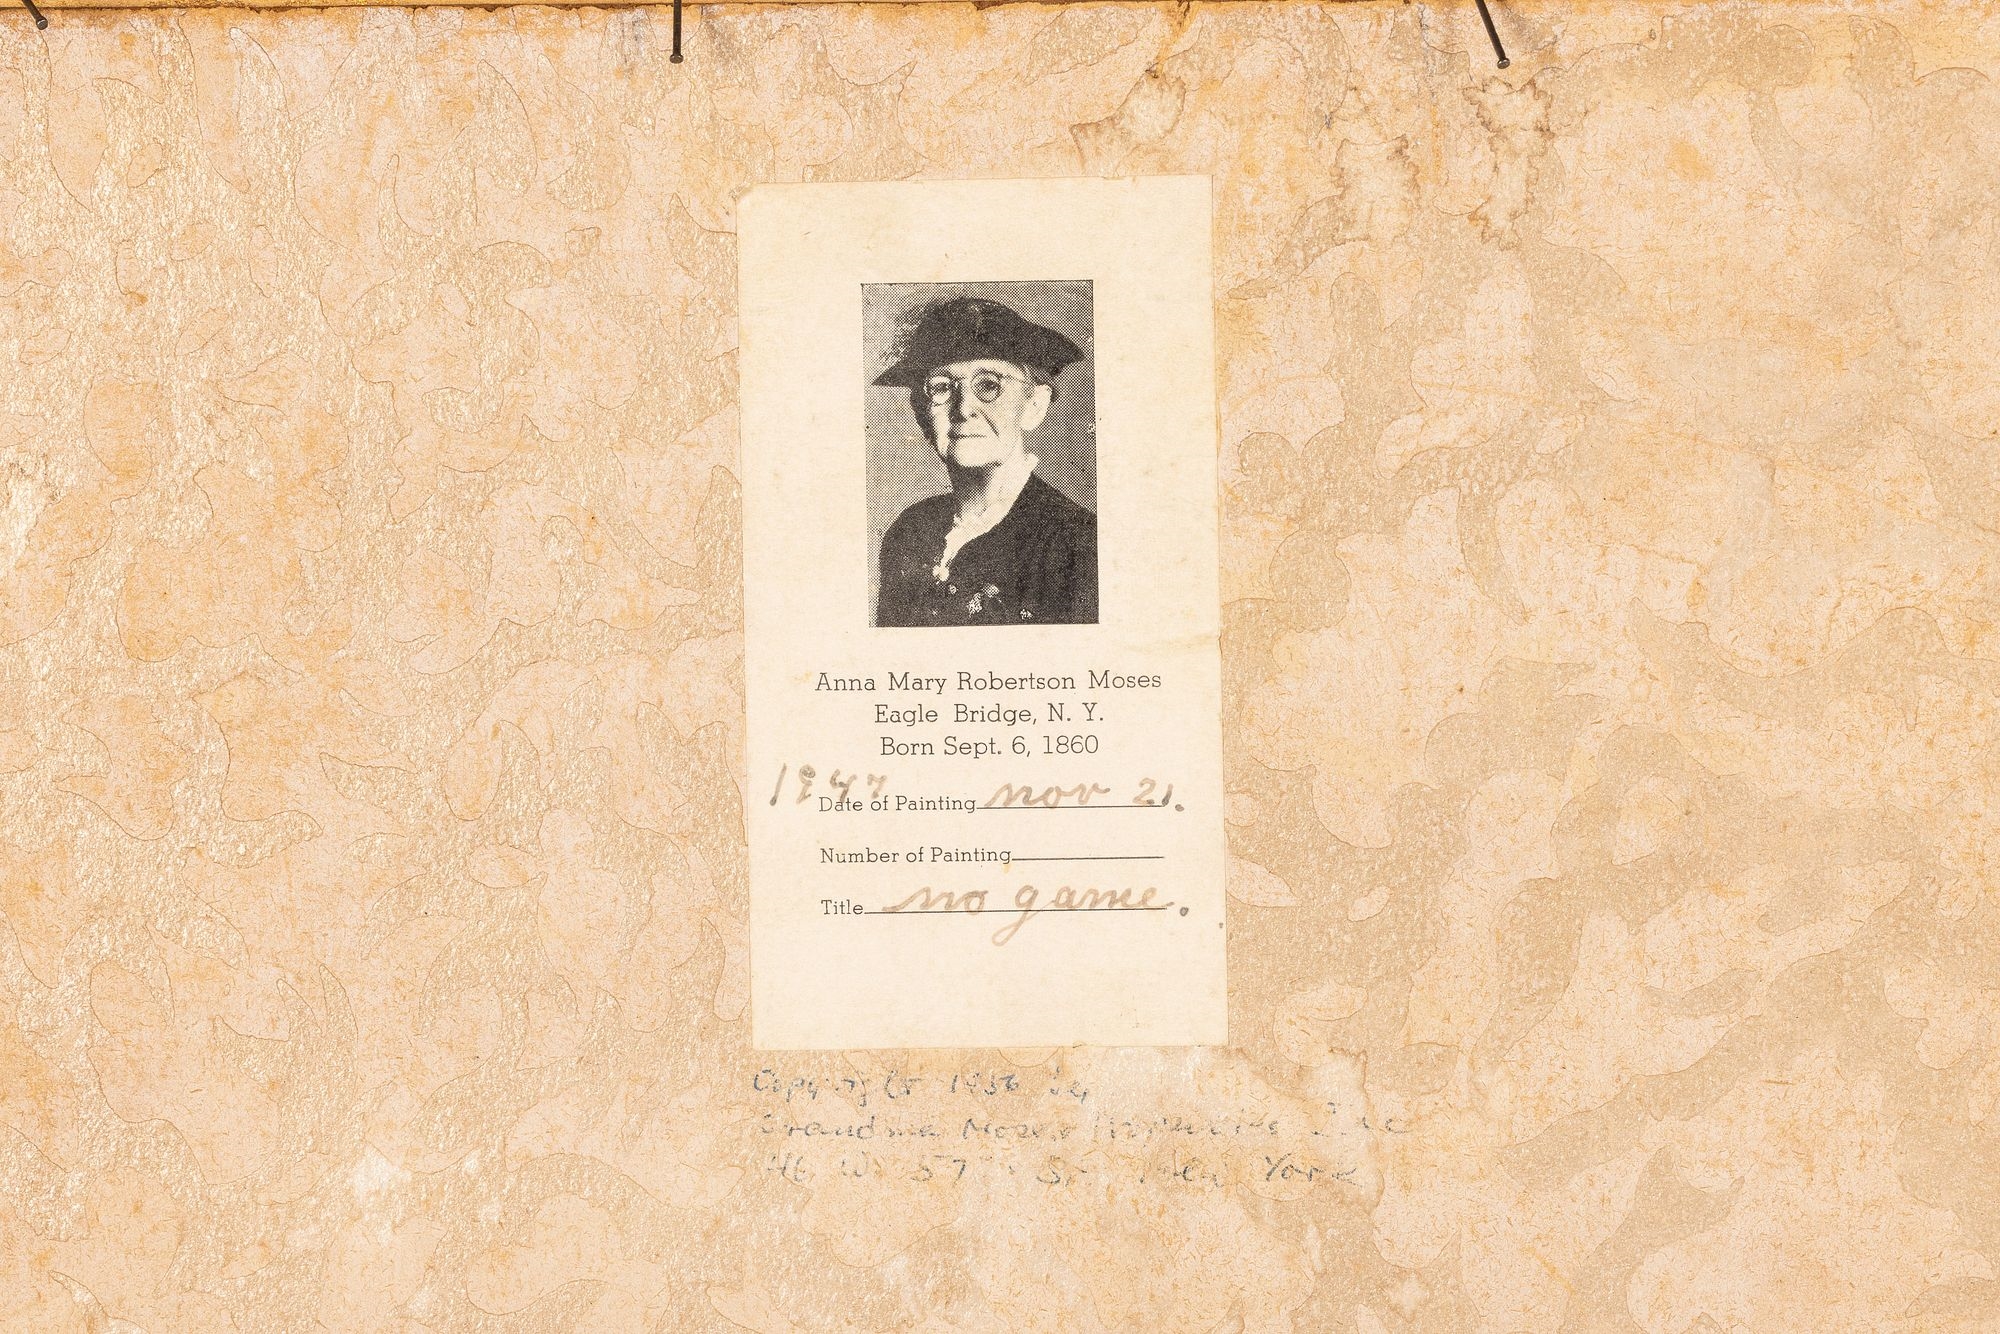 Anna Mary Robertson Moses
Eagle Bridge, N. Y.
Born Sept. 6, 1860
1947
Date of Painting nov 21.
Number of Painting
Title no game.
Copyright 1956 by
Grandma Moses Properties Inc
46 W. 57 St. New York